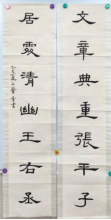 文章典重張平子
居處清幽王右丞